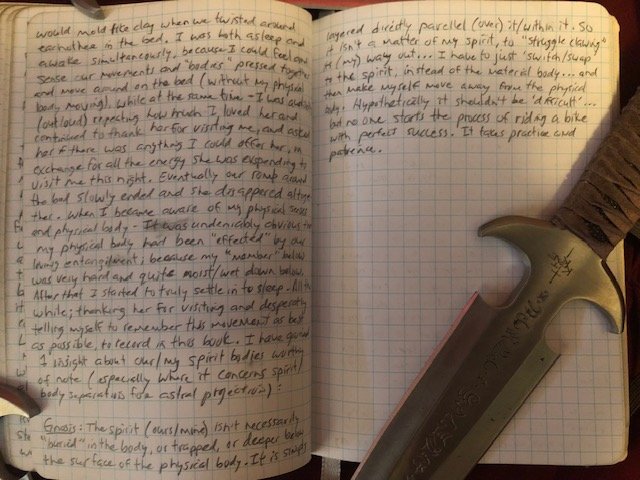 would mold like clay when we twisted around
eachother in the bed. I was both asleep and
awake simultaneously. because I could feel and
sense our movements and "bodies" pressed together
and move around on the bed (without my physical
body moving). while at the same time - I was
(outloud) repeating how much I, loved her and
continued to thank her for visiting me, and asked
her if there was anything I could offer her, in
exchange for all the energy she was expending to
visit me this night. Eventually our romp around
the bed slowly ended and she disappered altoge
ther. when I became aware of my physical senses
and physical body - It was undeniably obvious
my physical body had been "effected" by our
loving entanglement; because my "member" below
was very hard and quite moist/wet down below.
After that I started to truly settle in to sleep - All the
while; thanking her for visiting and desperatly
telling myself to remember this movement as best
as possible, to record in this book. I have gained
1 insight about our/my spirit bodies worthy
of note (especially where it concerns spirit/
body separation for astral projection):
Gnosis: The spirit (ours/mine) isn't necessarily
"buried" in the body, or trapped, or deeper below
the surface of the physical body. It is simply
layered directly parellel (over) it/within it. So
it isn't a matter of my spirit, to "struggle clawing"
it (my) way out... I have to just 'switch/swap'
to the spirit, instead of the material body... and
then make myself move away from the physical
body. Hypothetically it shouldn't be 'difficult'...
but no one starts the process of riding a bike
with perfect success. It takes practice and
patience.